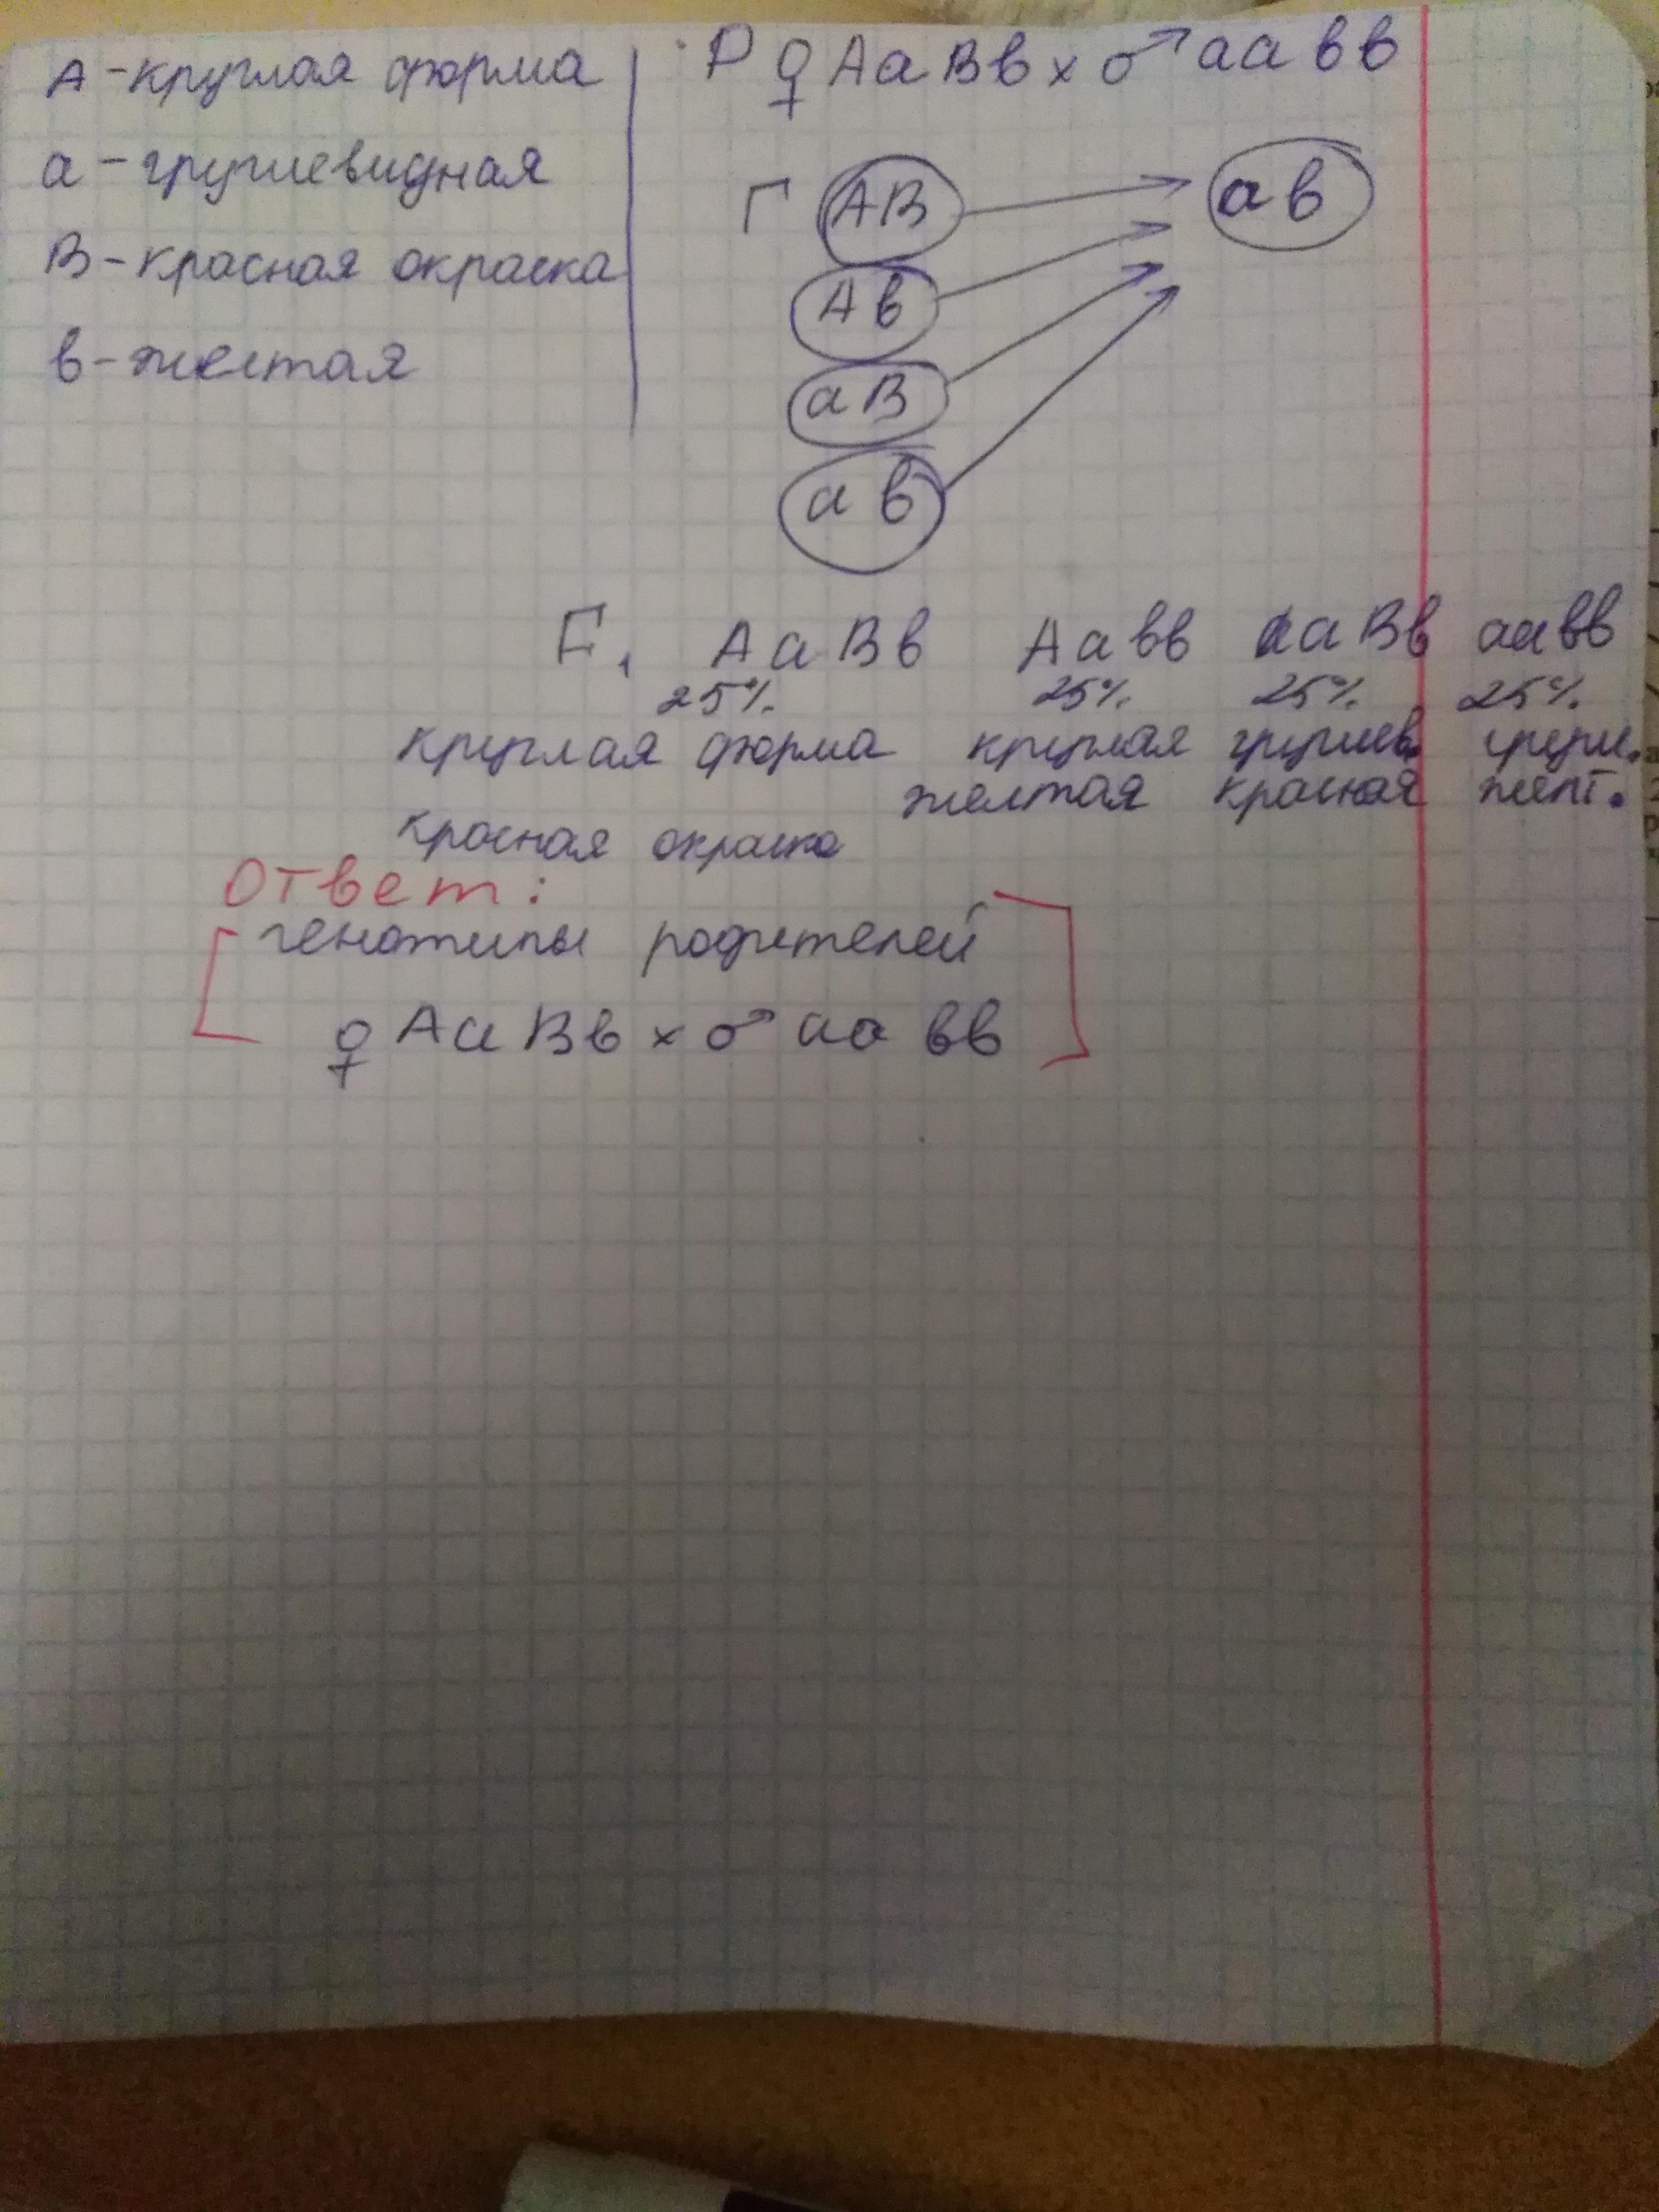 А-круглая форма
а-грушевидная
В-красная окраска
в-желтая
Р ♀ АаВв х ♂ аавв
Г АВ ав
Ав
аВ
ав
F1 АаВв Аавв ааВв аавв
25% 25% 25% 25%
круглая форма круглая грушев. груш.
желтая красная желт.
красная окраска
Ответ:
генотипы родителей
♀ АаВв х ♂ аа вв